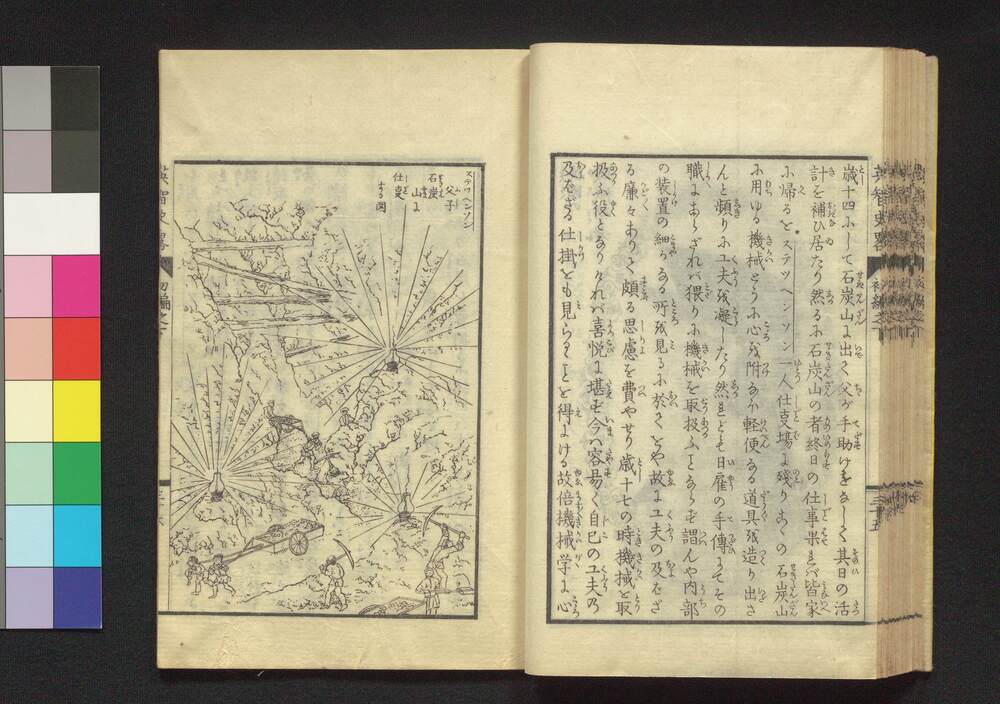 歳十四ふして石炭山に出て父が手助けをなして其日の活
計を補ひ居たり然るふ石炭山の者終日の仕事果れバ皆家
ふ帰るをステツヘンソン一人仕叓場に残りあての石炭山
ふ用ゆる機械とうふ心を附なか軽便なる道具を造り出さ
んと頻りふ工夫を凝したり然れども日雇の手傳にてその
職にあらざれバ猥りふ機械を取扱ふことならず謂んや内部
の装置の細かなる所を見るふ於てをや故に工夫の及ばざ
る廉々ありて頗る思慮を費やせり歳十七の時機械を取
扱ふ役となりけれバ喜悦に堪ず今ハ容易く自己の工夫乃
及バざる仕掛をも見らるゝことを得にける故倍機械学に心
ステツヘンソン
父子
石炭
山に
仕叓
する圖